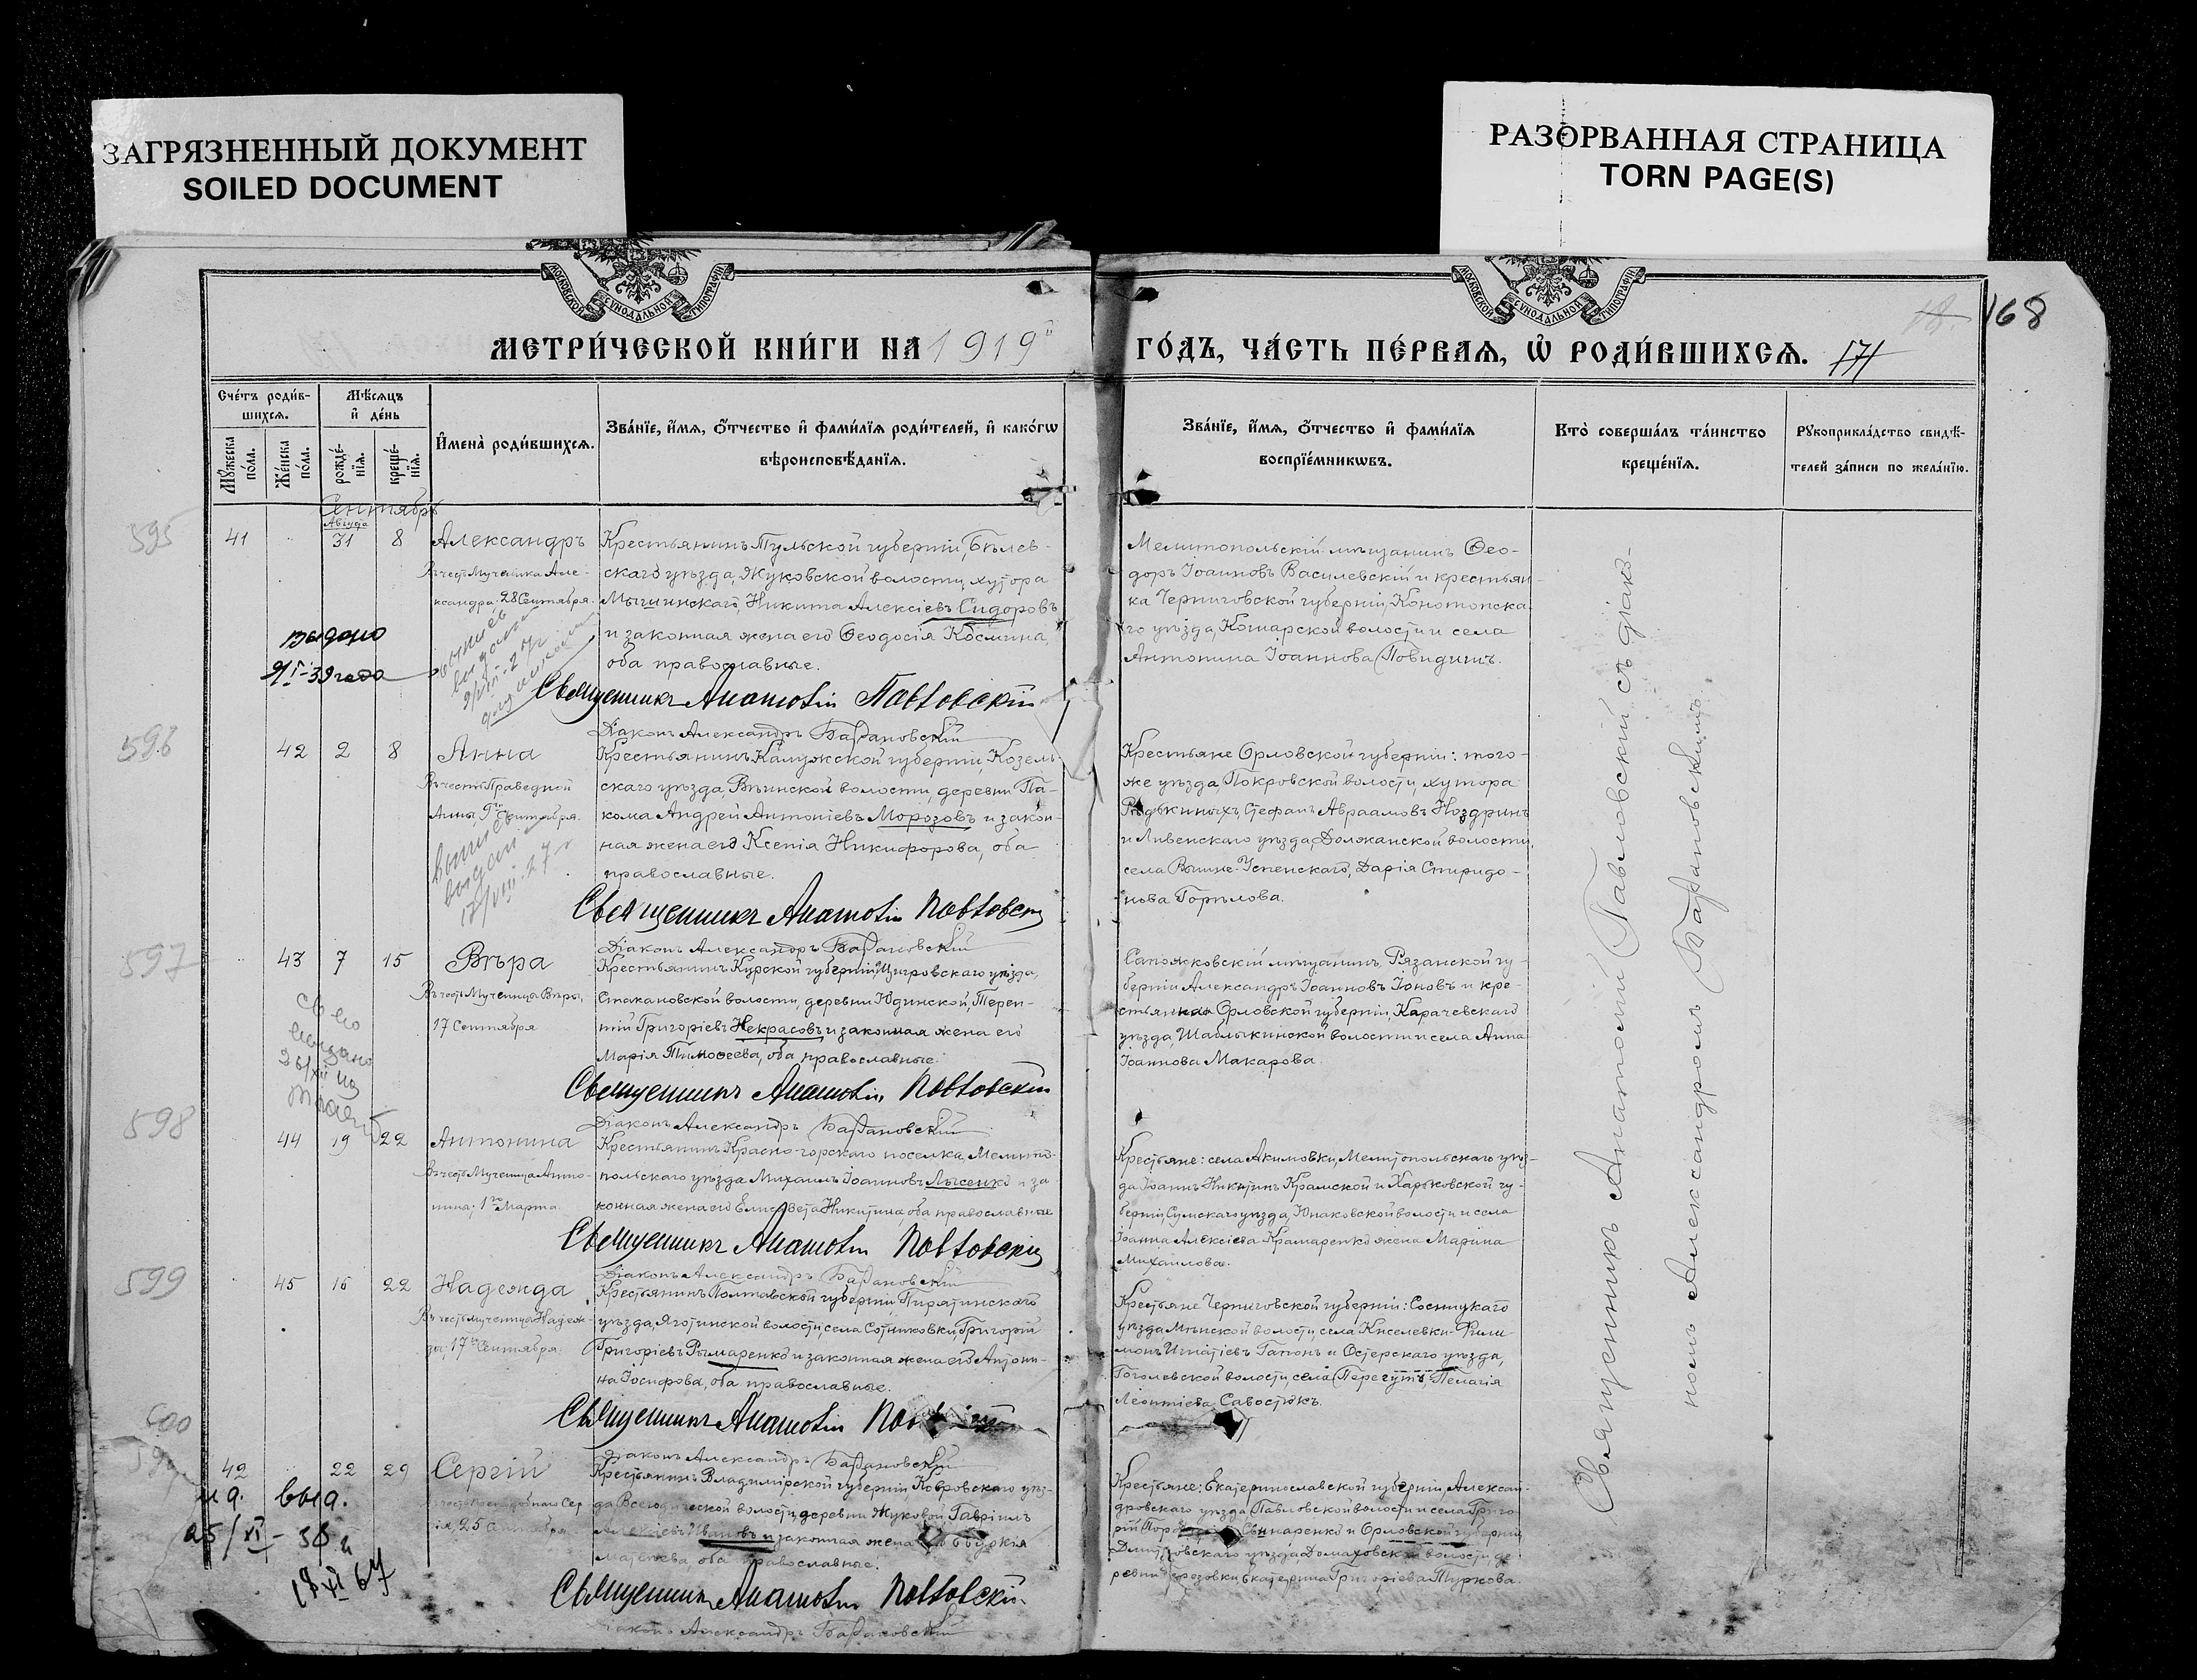 ЗАГРЯЗНЕННЫЙ ДОКУМЕНТ
SOILED DOCUMENT
РАЗОРВАННАЯ СТРАНИЦА
TORN PAGE(S)
МОСКОВСКОЙ СѴНОДАЛЬНОЙ ТИПОГРАФІИ
МОСКОВСКОЙ СѴНОДАЛЬНОЙ ТИПОГРАФІИ
168
МЕТРИ́ЧЕСКОЙ КНИ́ГИ НА 1919й ГО́ДЪ, ЧА́СТЬ ПЕ́РВАЯ, Ѡ҆ РОДИ́ВШИХСѦ. 171
Сче́тъ роди́в-
шихсѧ.
Мѣ́сѧцъ
и҆ де́нь
Мꙋ́жеска по́ла.
Же́нска по́ла.
рожде́-
нїѧ.
креще́-
нїѧ.
И҆мена̀ роди́вшихсѧ.
Зва́нїе, и҆́мѧ, ѻ҆́тчество и҆ фами́лїѧ роди́телей, и҆ како́гѡ
вѣроисповѣ́данїѧ.
Зва́нїе, и҆́мѧ, ѻ҆́тчество и҆ фами́лїѧ
воспрїе́мникѡвъ.
Кто̀ соверша́лъ та́инство
креще́нїѧ.
Рꙋкоприкла́дство свидѣ́-
телей за́писи по жела́нїю.
Сентябрь
595
41
Августа
31
8
Александръ
Въ честь Мученика Але-
ксандра, 28 Сентября.
выдано
9/I-39 года
Крестьянинъ Тульской губерніи, Бѣлев-
скаго уѣзда, Жуковской волости, хутора
Мышинскаго, Никита Алексіевъ Сидоровъ
и законная жена его Ѳеодосія Космина,
оба православные.
Священникъ Анатолій Павловскій
Діаконъ Александръ Барановскій
Мелитопольскій мѣщанинъ Ѳео-
доръ Іоанновъ Василевскій и крестьян-
ка Черниговской губерніи, Конотопска-
го уѣзда, Кошарской волости и села
Антонина Іоаннова Повидишъ.
596
42
2
8
Анна
Въ честь Праведной
Анны, 9го Сентября.
выдан
17/VIII-27 г
Крестьянинъ Калужской губерніи, Козель-
скаго уѣзда, волости, деревни Па-
кома Андрей Антоніевъ Морозовъ и закон-
ная жена его Ксенія Никифорова, оба
православные.
Священникъ Анатолій Павловскій
Діаконъ Александръ Барановскій
Крестьяне Орловской губерніи: того-
же уѣзда Покровской волости, хутора
Стефанъ Авраамовъ Ноздринъ
и Ливенскаго уѣзда, Должанской волости,
села Успенскаго, Дарія Спиридо-
нова Горѣлова.
597
43
7
15
Вѣра
Въ честь Мученица Вѣры,
17 Сентября
Крестьянинъ Курской губерніи, Щигровскаго уѣзда,
Стакановской волости, деревни Юдинской, Терен-
тій Григоріевъ Некрасовъ и законная жена его
Марія Тимоѳеева, оба православные.
Священникъ Анатолій Павловскій
Діаконъ Александръ Барановскій
Сапожковскій мѣщанинъ, Рязанской гу-
берніи Александръ Іоанновъ Іоновъ и кре-
стьянка Орловской губерніи, Карачевскаго
уѣзда, Шаблыкинской волости и села Анна
Іоаннова Макарова.
598
44
19
22
Антонина
Въ честь Мученица Анто-
нина, 1го Марта.
Крестьянинъ Красно-горскаго поселка, Мелито-
польскаго уѣзда Михаилъ Іоанновъ Лысенко и за-
конная жена его Елисавета Никитина, оба православные
Священникъ Анатолій Павловскій
Діаконъ Александръ Барановскій
Крестьяне: села Акимовки, Мелитопольскаго уѣз-
да Іоаннъ Никитинъ Крамской и Харьковской гу-
берніи, Сумскаго уѣзда, Юнаковской волости и села
Іоанна Алексіева Крамаренко жена Марина
Михаилова.
599
45
16
22
Надежда
Въ честь мученица Надеж-
ды, 17го Сентября.
Крестьянинъ Полтавской губерніи, Пирятинскаго
уѣзда, Яготинской волости, села Сотниковки, Григорій
Григоріевъ Рымаренко и законная жена его Антони-
на Іосифова, оба православные.
Священникъ Анатолій
Діаконъ Александръ Барановскій
Крестьяне Черниговской губерніи: Сосницкаго
уѣзда Мѣнской волости, села Киселевки Фили-
монъ Игнатіевъ Гапонъ и Остерскаго уѣзда,
Гоголевской волости, села Пелагія
Леонтіева Савостюкъ.
600
42
22
29
Сергій
25 Сентября
выд.
25/XI-38 г
18 XI 67
Крестьянинъ Владимірской губерніи, Ковровскаго уѣз-
да Всегодической волости, деревни Жуковой, Гавріилъ
Алексіевъ Ивановъ и законная жена его Евдокія
оба православные.
Священникъ Анатолій Павловскій
Діаконъ Александръ Барановскій
Крестьяне: Екатеринославской губерніи, Алексан-
дровскаго уѣзда, Павловской волости и села Григо-
рій Свинаренко и Орловской губерніи
Дмитровскаго уѣзда, Домаховской волости, де-
ревни Екатерина Григоріева Туркова.
Священникъ Анатолій Павловскій съ діако-
номъ Александромъ Барановскимъ.